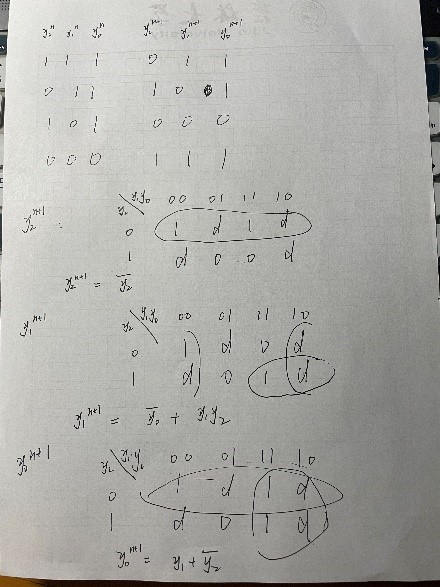 y₂ⁿ y₁ⁿ y₀ⁿ y₂ⁿ⁺¹ y₁ⁿ⁺¹ y₀ⁿ⁺¹
1 1 1 0 1 1
0 1 1 1 0 1
1 0 1 0 0 0
0 0 0 1 1 1
y₂\y₁y₀ 00 01 11 10
y₂ⁿ⁺¹ :
0 1 d 1 d
1 d 0 0 d
y₂ⁿ⁺¹ = y̅₂
y₁ⁿ⁺¹ y₂\y₁y₀ 00 01 11 10
0 1 d 0 d
1 d 0 1 d
y₁ⁿ⁺¹ = y̅₀ + y₁y₂
y₀ⁿ⁺¹ y₂\y₁y₀ 00 01 11 10
0 1 d 1 d
1 d 0 1 d
y₀ⁿ⁺¹ = y₁ + y̅₂